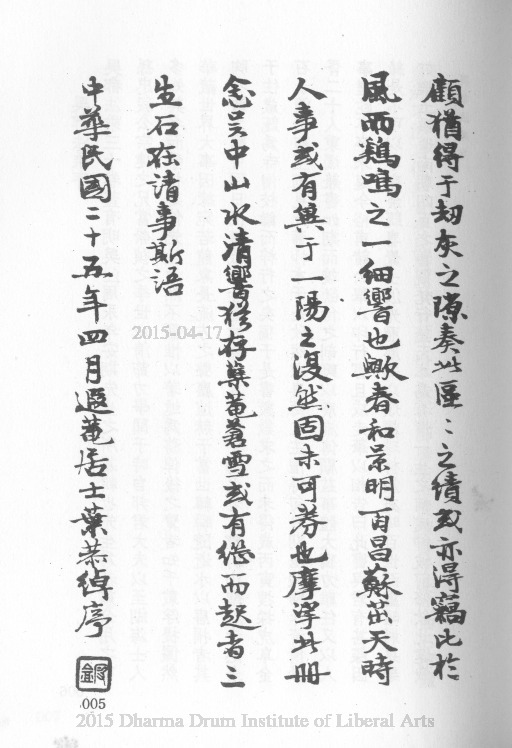 顧猶得于劫灰之隙奏此區：之績或亦得竊比於
風而鷄鳴之一細響也歟春和景明百昌蘇茁天時
人事或有異于一陽之復然固未可券也摩挲此冊
念吳中山水清響猶存葉菴蒼雪或有繼而起者三
生石在請事斯語
中華民國二十五年四月遐菴居士葉恭綽序
2015-04-17
005
2015 Dharma Drum Institute of Liberal Arts